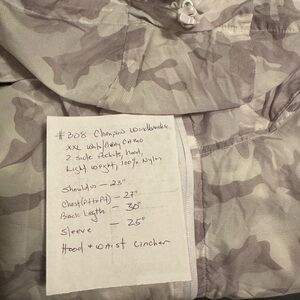 #308 Champion Windbreaker
XXL White/Gray Camo
2 side Pockets, hood,
Light weight, 100% Nylon
Shoulders — 23"
Chest (Pit to Pit) — 27"
Back Length — 30"
Sleeve — 25"
Hood + waist Cincher